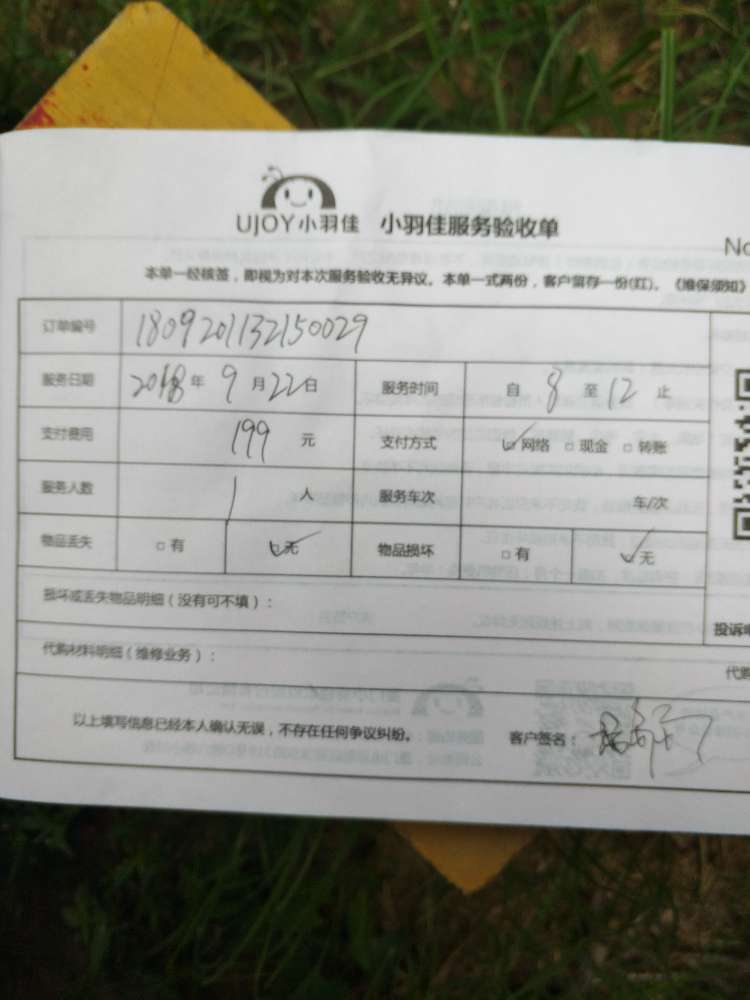 UJOY小羽佳 小羽佳服务验收单
No
本单一经核签，即视为对本次服务验收无异议。本单一式两份，客户留存一份(红)。《维保须知》
订单编号 1809201132150029
服务日期 2018年9月22日 服务时间 自8至12止
支付费用 199元 支付方式 ☑网络 □现金 □转账
服务人数 1人 服务车次 车/次
物品丢失 □有 ☑无 物品损坏 □有 ☑无
损坏或丢失物品明细（没有可不填）：
投诉电
代购材料明细（维修业务）：
代购
以上填写信息已经本人确认无误，不存在任何争议纠纷。 客户签名：